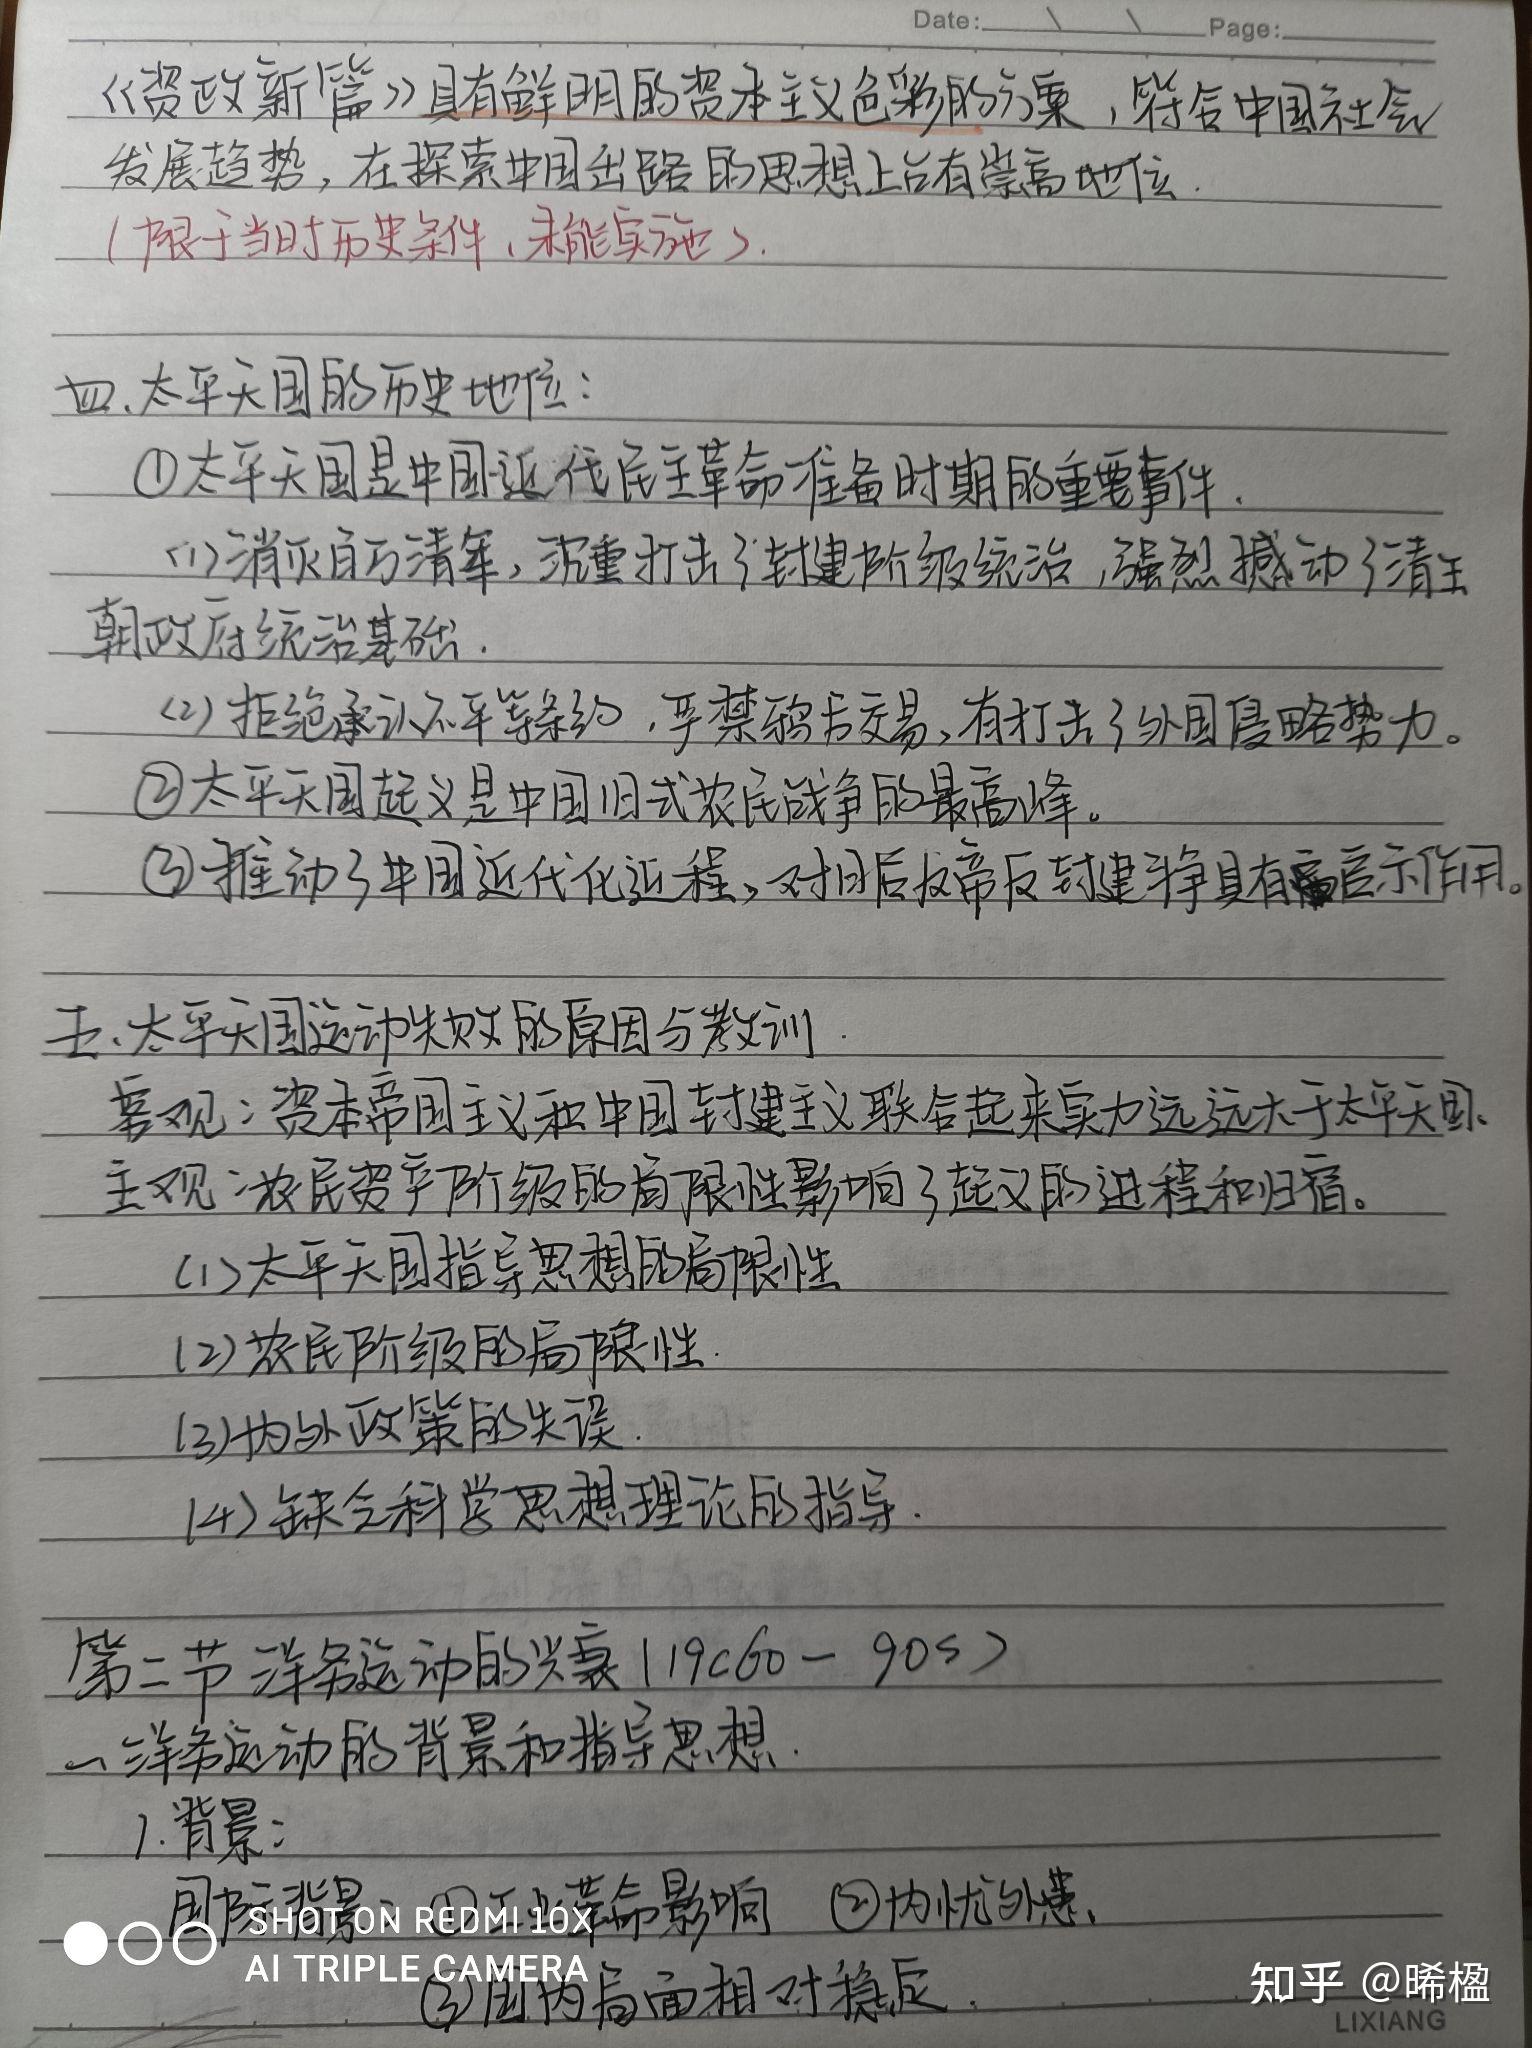 Date: \ \ Page:
《资政新篇》具有鲜明的资本主义色彩的方案,符合中国社会
发展趋势,在探索中国出路的思想上占有崇高地位.
(限于当时历史条件,未能实施).
四.太平天国的历史地位:
①太平天国是中国近代民主革命准备时期的重要事件.
(1)消灭百万清军,沉重打击了封建阶级统治,强烈撼动了清王
朝政府统治基础.
(2)拒绝承认不平等条约,严禁鸦片交易,有打击了外国侵略势力。
②太平天国起义是中国旧式农民战争的最高峰。
③推动了中国近代化近程,对日后反帝反封建斗争具有启示作用。
五.太平天国运动失败的原因与教训.
客观:资本帝国主义和中国封建主义联合起来实力远远大于太平天国.
主观:农民资产阶级的局限性影响了起义的进程和归宿。
(1)太平天国指导思想的局限性
(2)农民阶级的局限性.
(3)内外政策的失误.
(4)缺乏科学思想理论的指导.
第二节 洋务运动的兴衰(19c60-90s)
一、洋务运动的背景和指导思想.
1.背景:
国际背景: ①工业革命影响 ②内忧外患、
③国内局面相对稳定.
SHOT ON REDMI 10X
AI TRIPLE CAMERA
知乎 @晞楹
LIXIANG